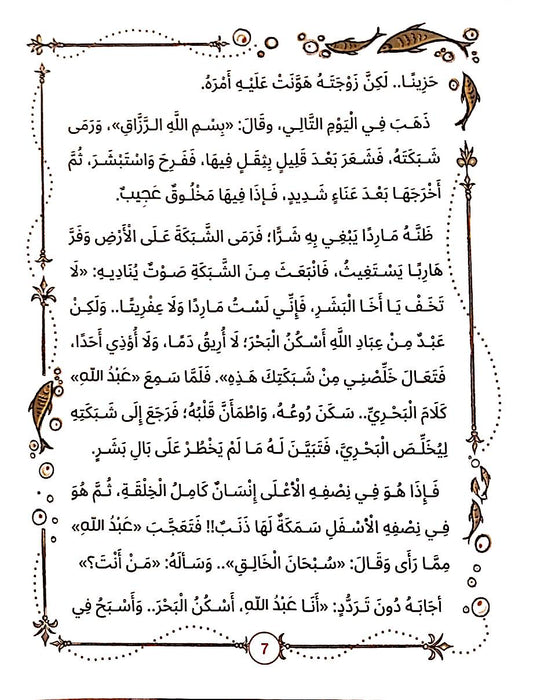 حَزِينًا.. لَكِنَّ زَوْجَتَهُ هَوَّنَتْ عَلَيْهِ أَمْرَهُ.
ذَهَبَ فِي الْيَوْمِ التَّالِي، وقَالَ: «بِسْمِ اللَّهِ الرَّزَّاقِ»، وَرَمَى
شَبَكَتَهُ، فَشَعَرَ بَعْدَ قَلِيلٍ بِثِقَلٍ فِيهَا، فَفَرِحَ وَاسْتَبْشَرَ، ثُمَّ
أَخْرَجَهَا بَعْدَ عَنَاءٍ شَدِيدٍ، فَإذَا فِيهَا مَخْلُوقٌ عَجِيبٌ.
ظَنَّهُ مَارِدًا يَبْغِي بِهِ شَرًّا؛ فَرَمَى الشَّبَكَةَ عَلَى الْأَرْضِ وَفَرَّ
هَارِبًا يَسْتَغِيثُ، فَانْبَعَثَ مِنَ الشَّبَكَةِ صَوْتٌ يُنَادِيهِ: «لَا
تَخَفْ يَا أَخَا الْبَشَرِ، فَإِنِّي لَسْتُ مَارِدًا وَلَا عِفْرِيتًا.. وَلَكِنْ
عَبْدٌ مِنْ عِبَادِ اللَّهِ أَسْكُنُ الْبَحْرَ؛ لَا أُرِيقُ دَمًا، وَلَا أُؤْذِي أَحَدًا،
فَتَعَالَ خَلِّصْنِي مِنْ شَبَكَتِكَ هَذِهِ». فَلَمَّا سَمِعَ «عَبْدُ اللهِ»
كَلَامَ الْبَحْرِيِّ.. سَكَنَ رُوعُهُ، وَاطْمَأَنَّ قَلْبُهُ؛ فَرَجَعَ إِلَى شَبَكَتِهِ
لِيُخَلِّصَ الْبَحْرِيَّ، فَتَبَيَّنَ لَهُ مَا لَمْ يَخْطُرْ عَلَى بَالِ بَشَرٍ.
فَإِذَا هُوَ فِي نِصْفِهِ الْأَعْلَى إِنْسَانٌ كَامِلُ الْخِلْقَةِ، ثُمَّ هُوَ
فِي نِصْفِهِ الْأَسْفَلِ سَمَكَةٌ لَهَا ذَنَبٌ!! فَتَعَجَّبَ «عَبْدُ اللهِ»
مِمَّا رَأَى وَقَالَ: «سُبْحَانَ الْخَالِقِ».. وَسَأَلَهُ: «مَنْ أَنْتَ؟»
أجَابَهُ دُونَ تَرَدُّدٍ: «أَنَا عَبْدُ اللهِ، أَسْكُنُ الْبَحْرَ.. وَأَسْبَحُ فِي
7